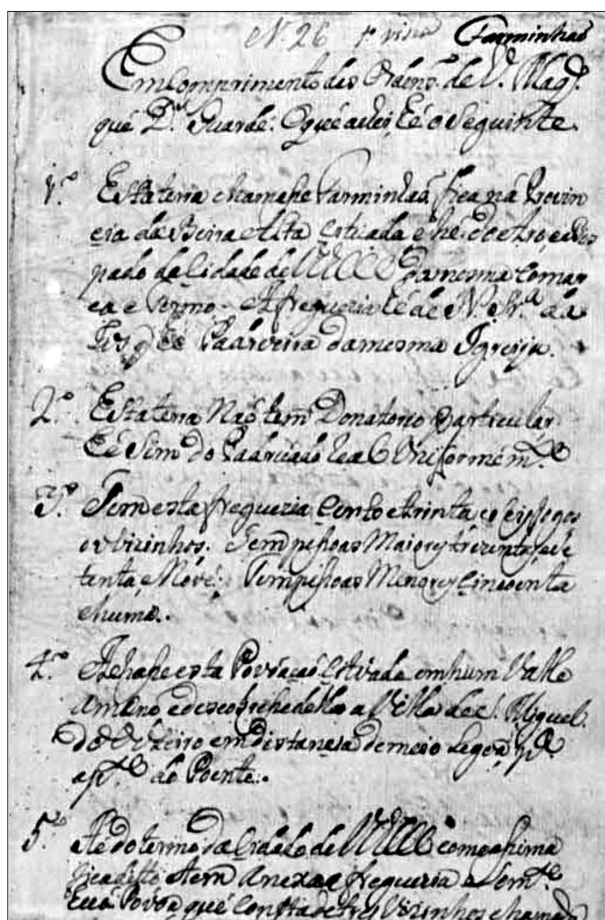 N.º 26 Farminhaõ
Em comprimento das Ordens de V. Mag.
que D.s Guarde. O que achei hé o Seguinte
1.º Esta terra chamase Farminhaõ, fica na Provin
cia da Beira Alta, cituada e he do
pado da Cidade de da mesma Comar
ca e Termo. A freguezia hé de N. Sr.ª da
Lus q hé Padroeira da mesma Igreija.
2.º Esta terra Naõ tem Donatorio particular
hé Sim do Padruado Real Uniformem.te
3.º Tem esta freguezia Cento e trinta e seis fogos
ou vizinhos. Tem pessoas Maiores trezentas, e se
tenta, e Nove. Tem pessoas Menores Cincoenta
e huma.
4.º Achase esta Povoaçaõ cituada em hum Valle
ameno e descobrese della a Villa de S. Miguel
do Outeiro em distancia de meio legoa p.ª
a p.te do Poente.
5.º do termo da Cidade de como asima
fica disto tem anexa a freguezia
Povoa que Consta de tres Vizinhos